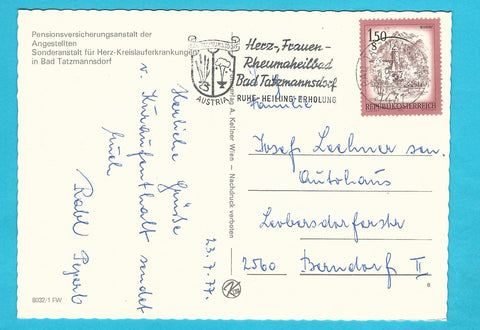 Pensionsversicherungsanstalt der
Angestellten
Sonderanstalt für Herz-Kreislauferkrankungen
in Bad Tatzmannsdorf
Herzliche Grüße
v. Kuraufenthalt sendet
Euch
23.7.77.
8032/1 FW
A. Kellner Wien - Nachdruck verboten
AUSTRIA
Herz-, Frauen-
Rheumaheilbad
Bad Tatzmannsdorf
RUHE-HEILUNG-ERHOLUNG
1.50
S
REPUBLIK ÖSTERREICH
Familie
Josef Lechner sen.
Autohaus
Leobersdorferstr
2560 Berndorf II